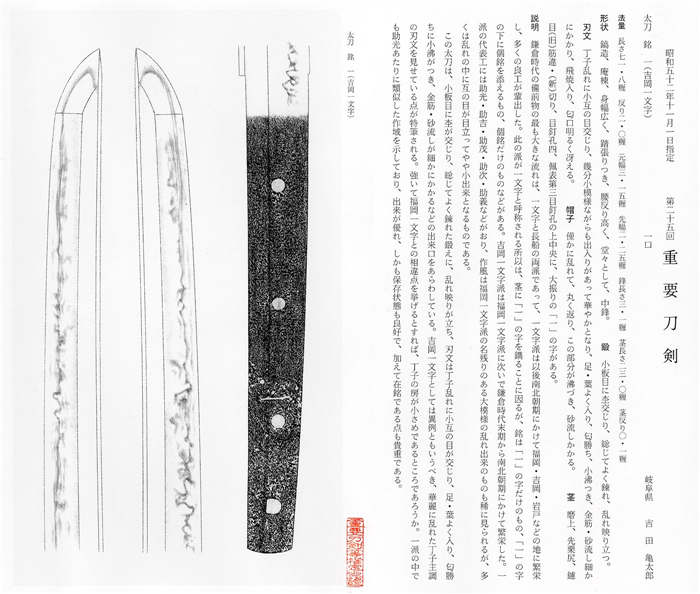 昭和五十二年十一月一日指定 第二十五回 重要刀剣
太刀 銘 一(吉岡一文字) 一口 岐阜県 吉田亀太郎
法量 長さ七一・八糎 反り二・〇糎 元幅三・一五糎 先幅二・二五糎 鋒長さ三・一糎 茎長さ二三・〇糎 茎反り〇・一糎
形状 鎬造、庵棟、身幅広く、踏張りつき、腰反り高く、堂々として、中鋒。 鍛 小板目に杢交じり、総じてよく錬れ、乱れ映り立つ。
刃文 丁子乱れに小互の目交じり、幾分小模様ながらも出入りがあって華やかとなり、足・葉よく入り、匂勝ち、小沸つき、金筋・砂流し細か
にかかり、飛焼入り、匂口明るく冴える。 帽子 僅かに乱れて、丸く返り、この部分が沸づき、砂流しかかる。 茎 磨上、先栗尻、鑢
目(旧)筋違・(新)切り、目釘孔四、佩表第三目釘孔の上中央に、大振りの「一」の字がある。
説明 鎌倉時代の備前物の最も大きな流れは、一文字と長船の両派であって、一文字派は以後南北朝期にかけて福岡・吉岡・岩戸などの地に繁栄
し、多くの良工が輩出した。此の派が一文字と呼称される所以は、茎に「一」の字を鐫ることに因るが、銘は「一」の字だけのもの、「一」の字
の下に個銘を添えるもの、個銘だけのものなどがある。吉岡一文字派は福岡一文字派に次いで鎌倉時代末期から南北朝期にかけて繁栄した。一
派の代表工には助光・助吉・助茂・助次・助義などがおり、作風は福岡一文字派の名残りのある大模様の乱れ出来のものも稀に見られるが、多
くは乱れの中に互の目が目立ってやや小出来となるものである。
この太刀は、小板目に杢が交じり、総じてよく錬れた鍛えに、乱れ映りが立ち、刃文は丁子乱れに小互の目が交じり、足・葉よく入り、匂勝
ちに小沸がつき、金筋・砂流しが細かにかかるなどの出来口をあらわしている。吉岡一文字としては異例ともいうべき、華麗に乱れた丁子主調
の刃文を見せている点が特筆される。強いて福岡一文字との相違点を挙げるとすれば、丁子の房が小さめであるところであろうか。一派の中で
も助光あたりに類似した作域を示しており、出来が優れ、しかも保存状態も良好で、加えて在銘である点も貴重である。
太刀 銘 一(吉岡一文字)